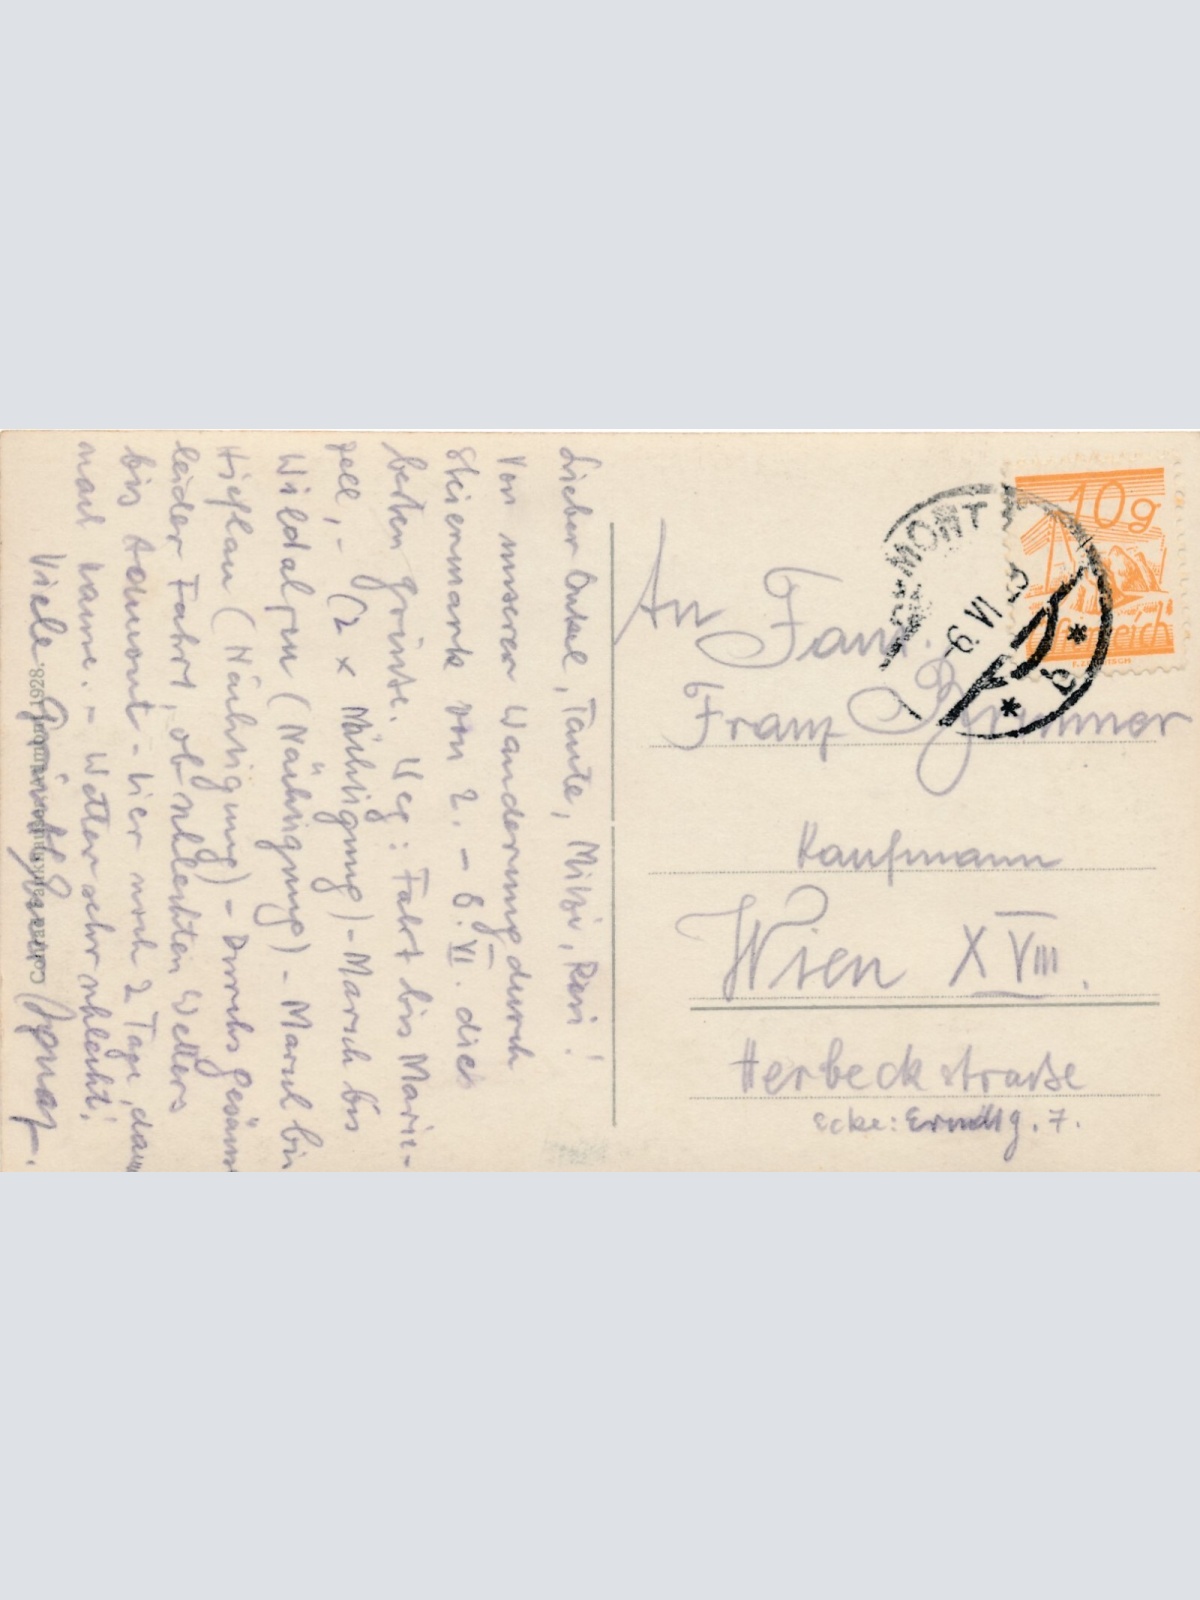 Lieber Onkel, Tante, Mitzi, Resi!
Von unserer Wanderung durch
Steiermark von 2. – 8. VI. die
besten Grüsse. Weg: Fahrt bis Marie-
zell, – (2 x Nächtigung) – Marsch bis
Wildalpen (Nächtigung) – Marsch bis
Hieflau (Nächtigung) – Durchs Gesäuse
leider Fahrt, ob schlechten Wetters
bis Admont – hier noch 2 Tage, dann
nach Hause. – Wetter sehr schlecht!
Viele Grüsse Euer Ignaz.
1928.
An Fam.
Franz Brunner
Kaufmann
Wien XVIII.
Herbeckstraße
Ecke: Erndtg. 7.
10g
Österreich
ADMONT
9 VI